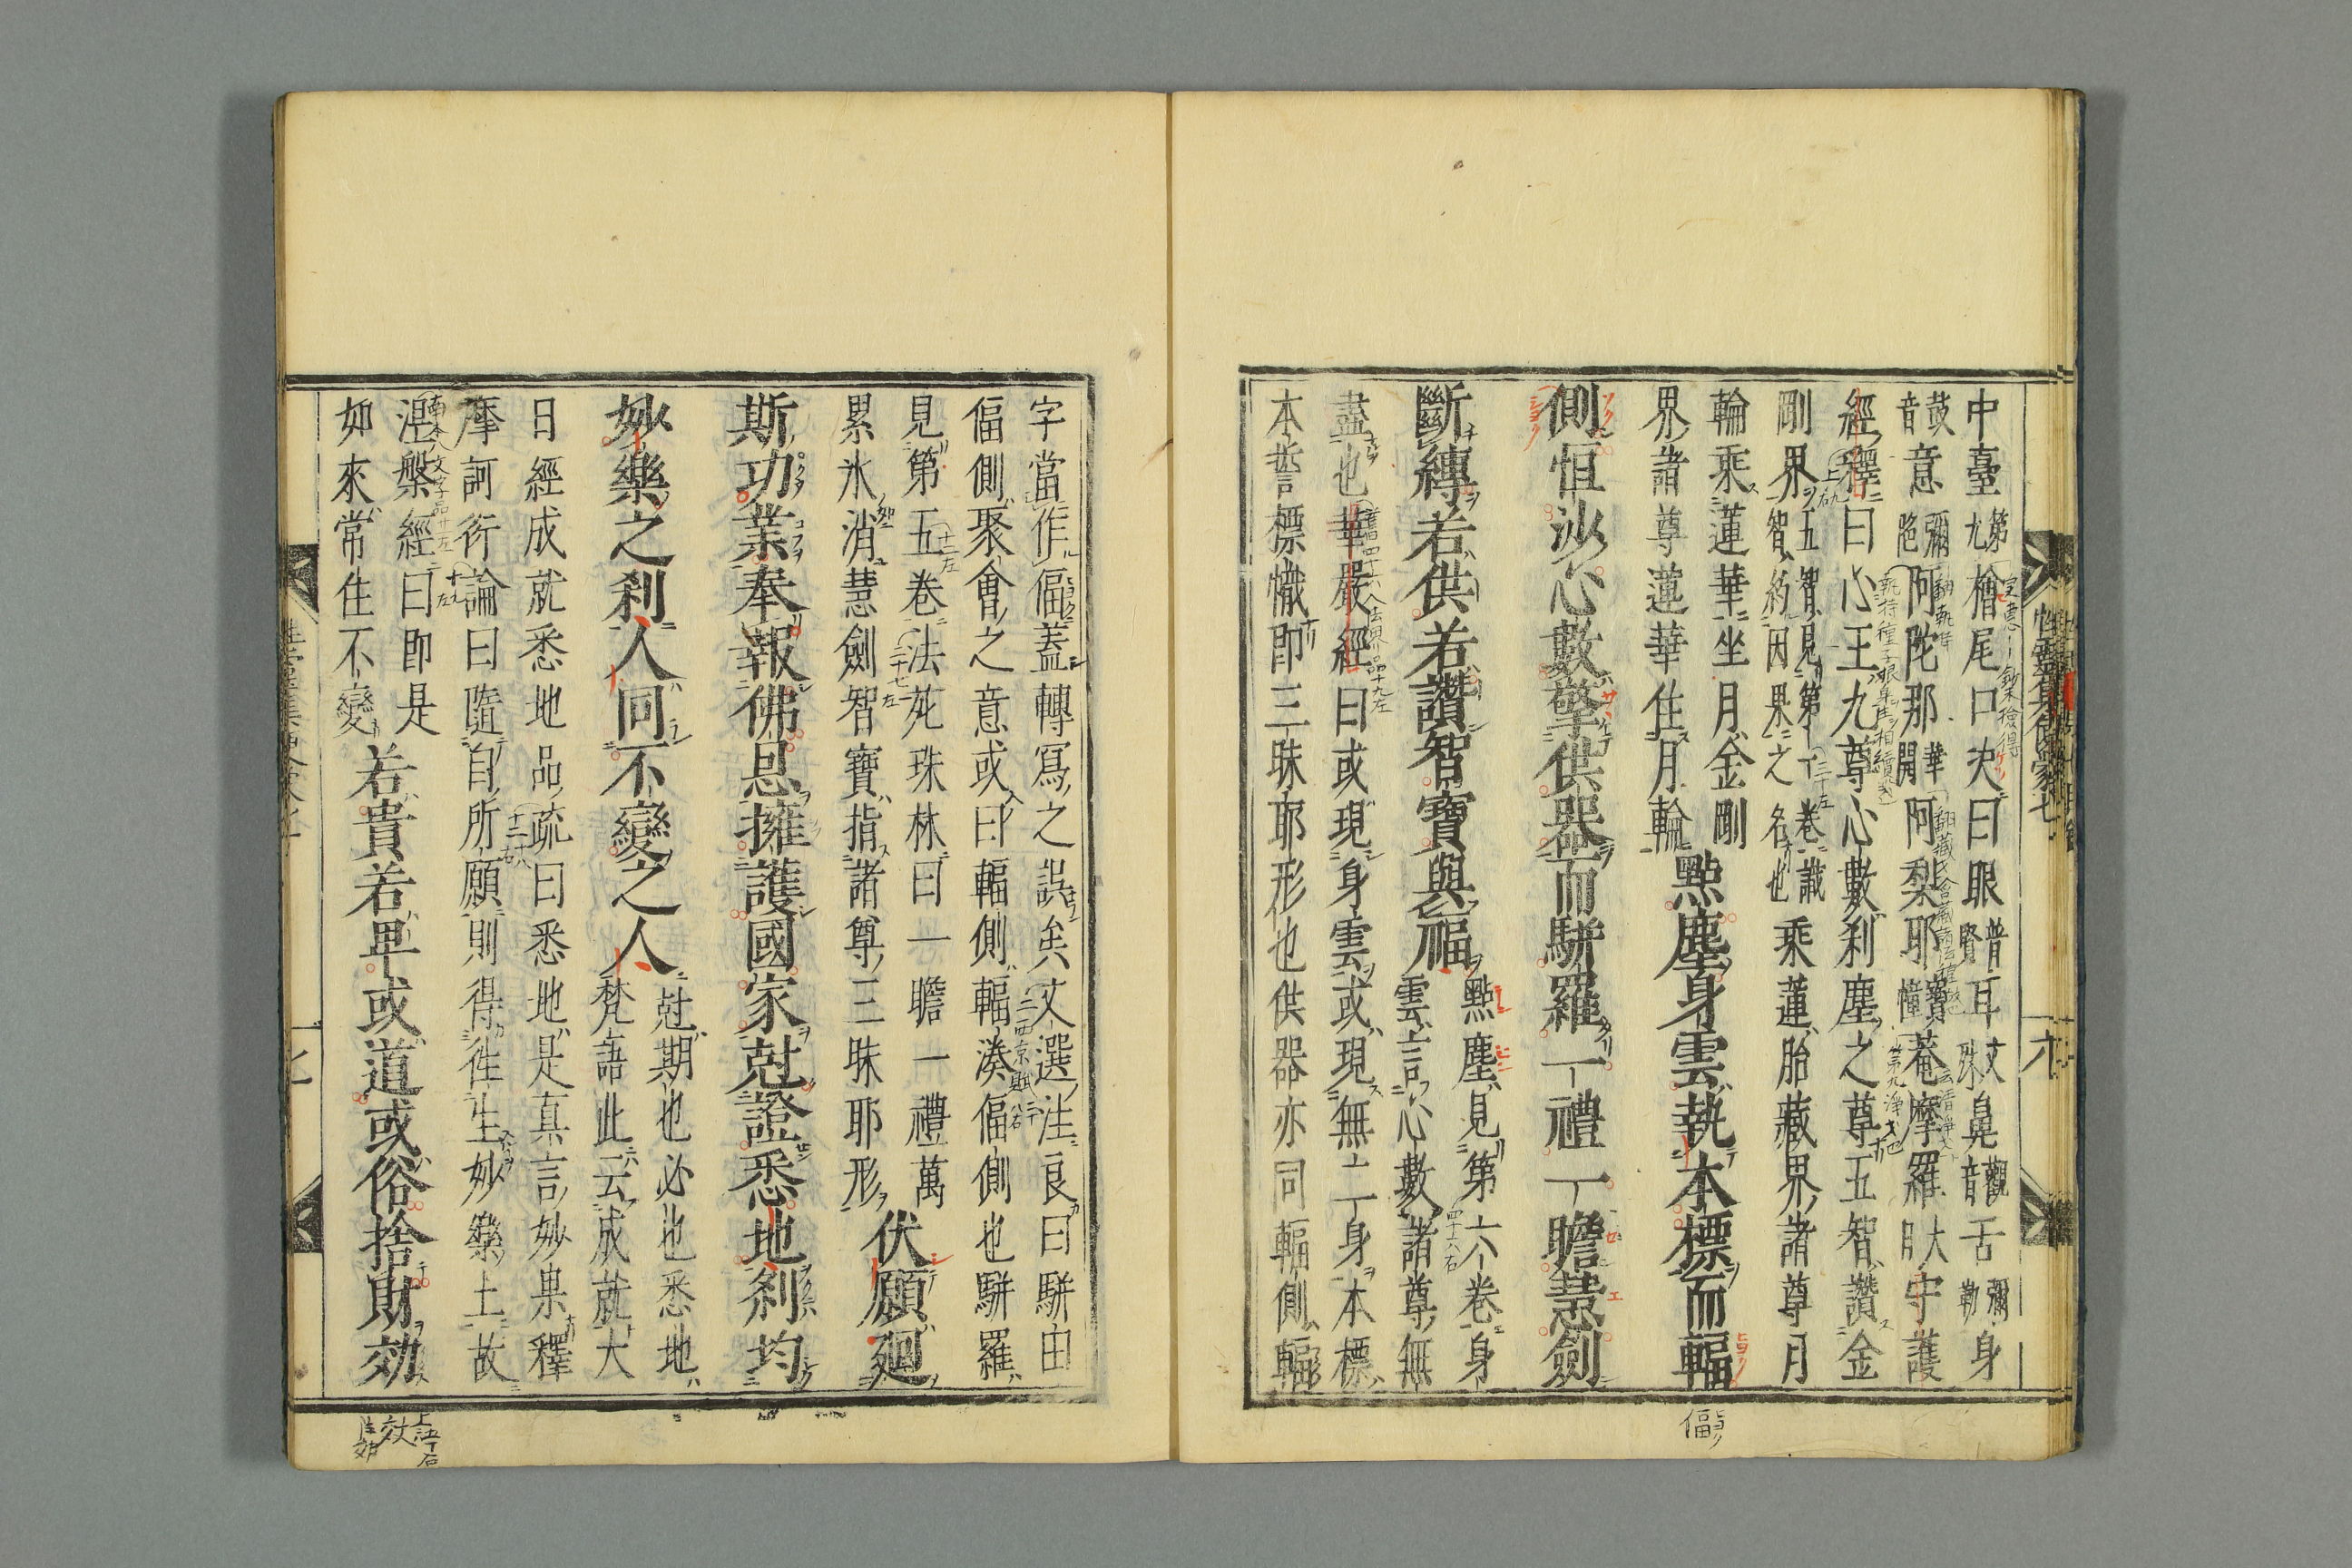 中臺第九檜尾口決曰眼普賢耳文殊鼻觀音舌彌勒身
鼓音意彌陀阿陀那開華阿梨耶寶幢菴摩羅大日守護
經釋曰心王九尊心數剎塵之尊五智讚金
剛界五智見第一卷識智約因果之名也乘蓮胎藏界諸尊月
輪乘蓮華坐月金剛
界諸尊蓮華住月輪點塵身雲執本標而輻
側恒沙心數擎供器而駢羅一禮一瞻慧劍
斷縛若供若讚智寶與福點塵見第六卷身
雲言心數諸尊無
盡也華嚴經曰或現身雲或現無二一身本標
本誓標幟即三昧耶形也供器亦同輻側輻
字當作偪蓋轉寫之誤矣文選注良曰駢田
偪側聚會之意或曰輻側輻湊偪側也駢羅
見第五卷法苑珠林曰一瞻一禮萬
累氷消慧劍智寶指諸尊三昧耶形伏願廻
斯功業奉報佛恩擁護國家尅證悉地剎均
妙樂之剎人同不變之人尅期也必也悉地
梵語此云成就大
日經成就悉地品疏曰悉地是真言妙果釋
摩訶衍論曰隨自所願則得徃生妙樂土故
涅槃經曰即是
如來常住不變若貴若卑或道或俗捨財効